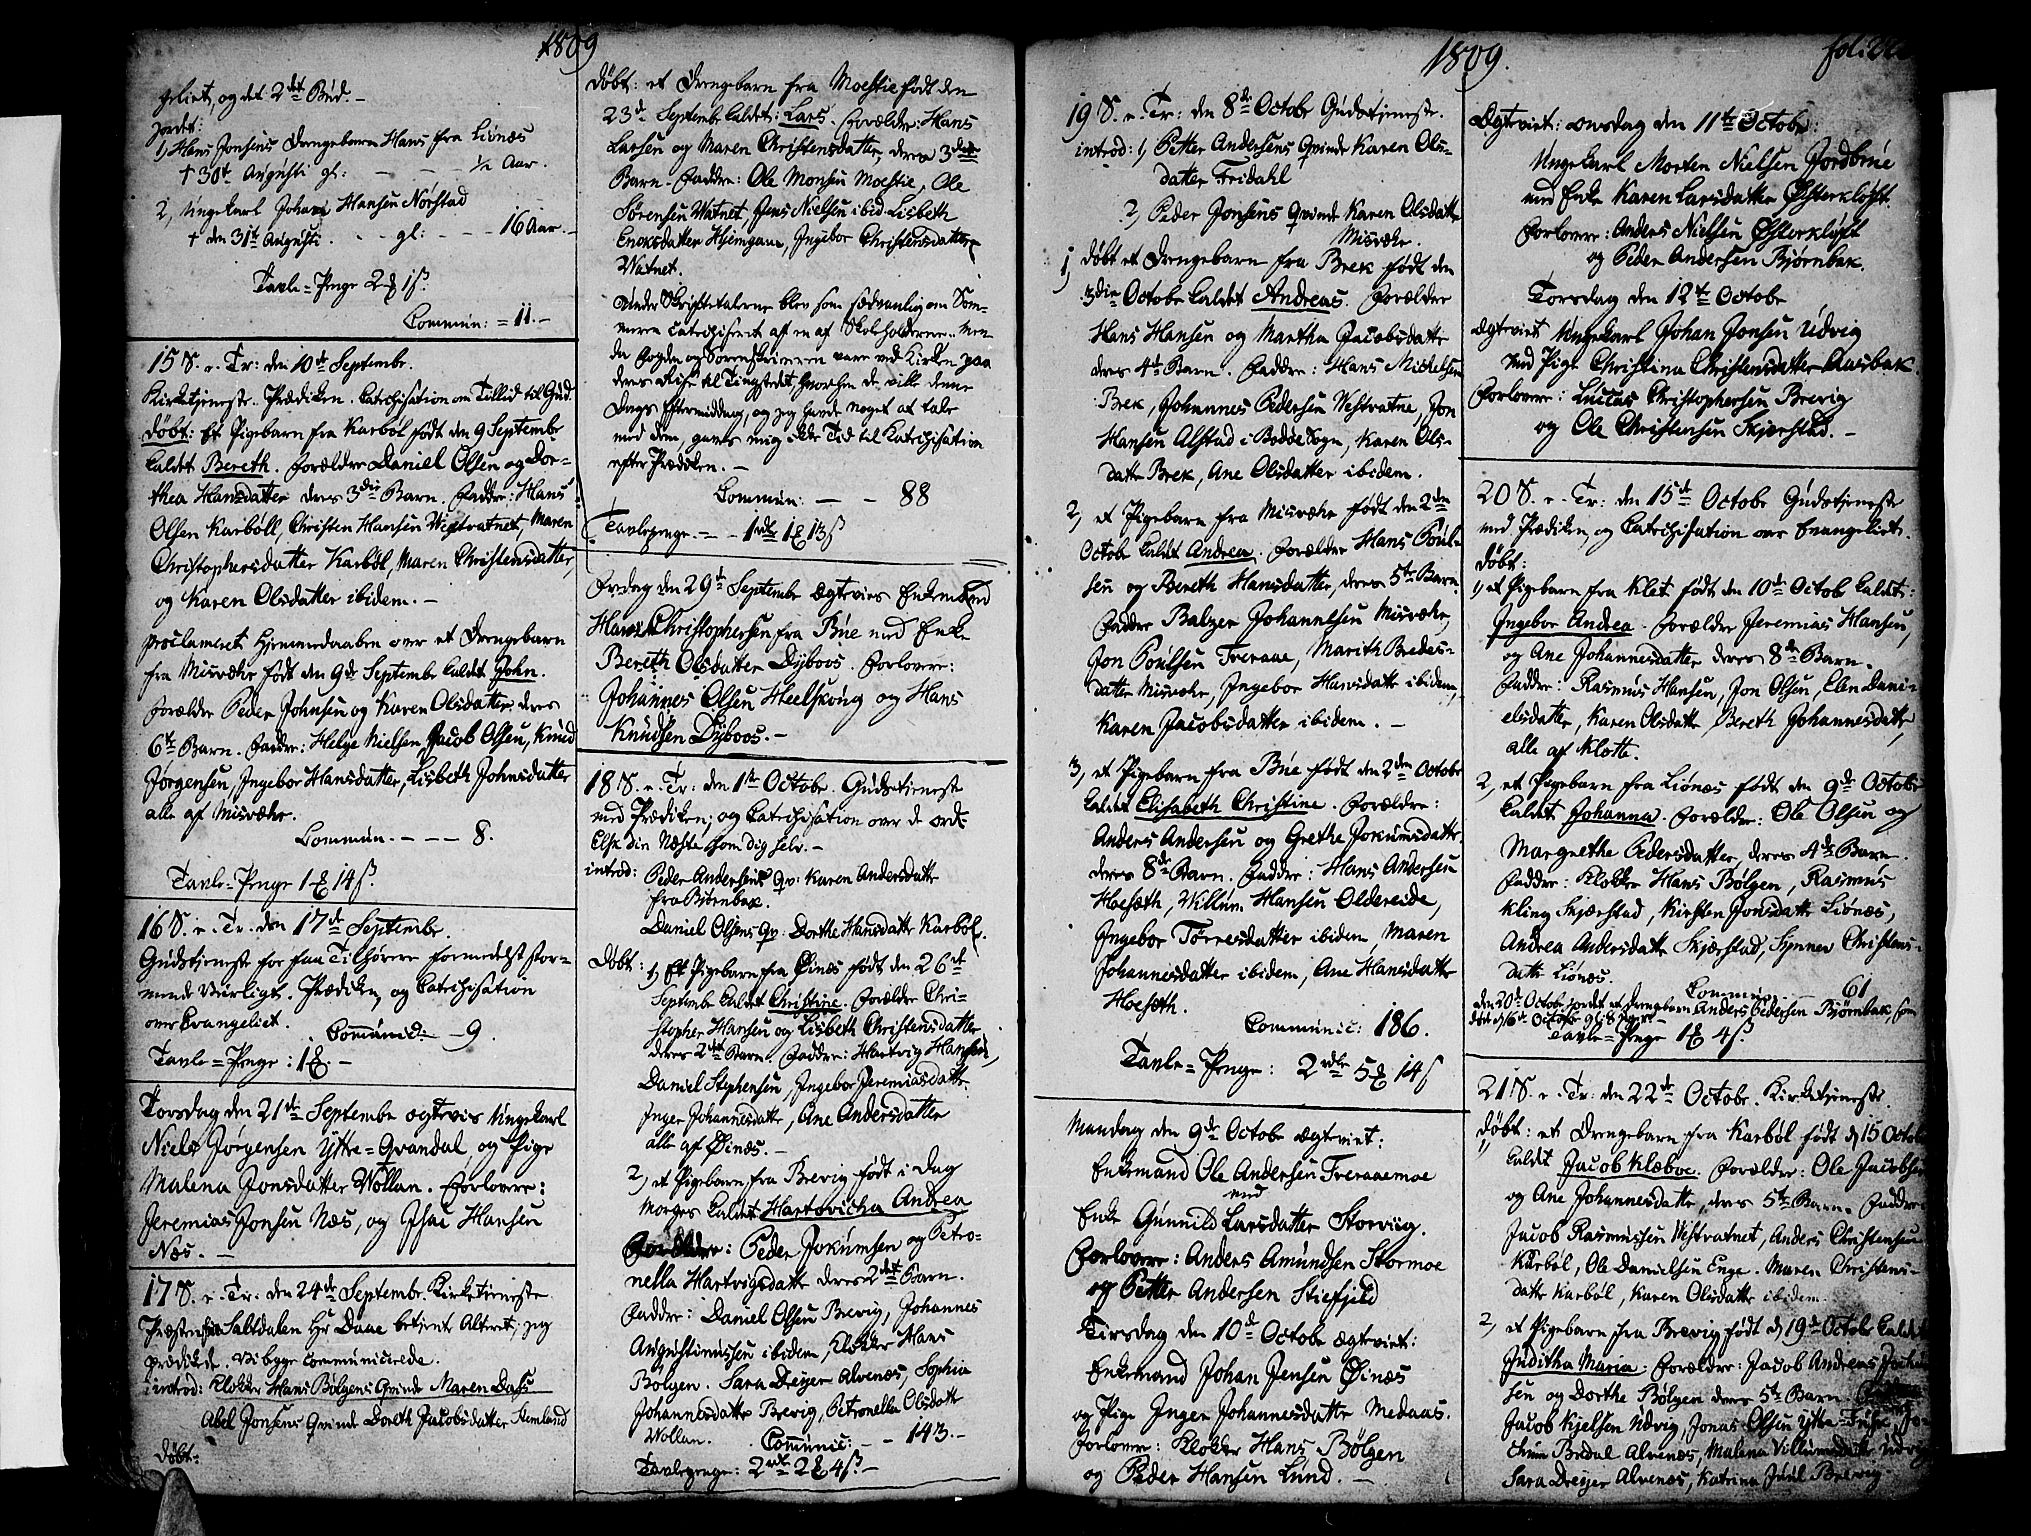 1809
geliet, og det 2det Bud. –
Jordet:
1) Hans Jonsens Drengebarn Hans fra Liønæs
† 30t Augusti gl: – – – ½ Aar.
2, Ungekarl Johan Hansen Nørstad
† den 31t Augusti. – – gl: – – – 16 Aar. –
Tavle-Penge 2 1 ß.
Commun: = 11. –
15 S. e. Tr: den 10de Septembr.
Kirketjeneste. Prædiken. Catechisation om Tillid til Gud.
Døbt: Et Pigebarn fra Karbøl født den 9 Septembr
kaldet Bereth. Forældre Daniel Olsen og Dor-
thea Hansdatter deres 3die Barn. Faddre: Hans
Olsen Karbøll, Christen Hansen Westvatnet, Maren
Christophersdatter Karbøl, Maren Christensdatter,
og Karen Olsdatter ibidem. –
proclameret Hjemmedaaben over et Drengebarn
fra Misvæhr født den 9de Septembr kaldet John.
Forældre Peder Johnsen og Karen Olsdatter, deres
6te Barn. Faddre: Helge Nielsen, Jacob Olsen, Knud
Jørgensen, Ingebor Hansdatter, Lisbeth Johnsdatter
alle af Misvæhr.
Commun. – – – 8.
Tavle-Penge 1 14 ß.
16 S. e. Tr. den 17de Septembr.
Gudstjeneste for faa Tilhørere formedelst stor-
mende Veirligt. Prædiken, og Catechisation
over Evangeliet.
Communic: – 9.
Tavle-Penge: 1. –
Torsdag den 21de Septembr ægtvies Ungekarl
Niels Jørgensen Ytte-Qvandal, og Pige
Malena Jonsdatter Wollan. Forlovere:
Jeremias Jonsen Næs, og Isac Hansen
Næs. –
17 S. e. Tr: den 24de Septembr. Kirketieneste.
Præsten fra Saltdalen Hr Daae betjente Alteret, jeg
prædikede. Vi begge communicerede.
introd: Klokker Hans Bølgens Qvinde Maren Dass
Abel Jonsens Qvinde Doreth Jacobsdatter Nemland
Døbt:
Døbt: et Drengebarn fra Moestie født den
23de Septembr kaldet: Lars. Forældre: Hans
Larsen og Maren Christensdatter, deres 3die
Barn. Faddre: Ole Monsen Moestie, Ole
Sørensen Watnet, Jens Nielsen ibid. Lisbeth
Enoksdatter Hjemgam, Ingebor Christensdatter
Watnet.
Under Skriftetalerne blev som sædvanlig om Som-
meren catechiseret af en af Skoleholderne. Men
da Fogden og Sorenskriveren vare ved Kirken paa
deres Reise til Tingstedet, hvorhen de ville denne
Dags Eftermiddag, og jeg havde noget at tale
med dem, gaves mig ikke Tid til Catechisation
efter Prædiken. –
Commun: – – 88
Tavlepenge. – – 1rdlr 1 13 ß
Fredag den 29de Septembr ægtevies Enkemand
Hans Christophersen fra Bue med Enke
Bereth Olsdatter Dybvos. Forlovere:
Johannes Olsen Heelskong og Hans
Knudsen Dybvos. –
18 S. e. Tr: den 1ste Octobr. Gudstjeneste
med Prædiken; og Catechisation over de Ord:
Elsk din Næste som dig selv. –
introd: Peder Andersens Qv: Karen Andersdatter
fra Bjørnbak.
Daniel Olsens Qv: Dorthe Hansdatter Karbøl.
Døbt: 1) Et Pigebarn fra Øinæs født den 26de
Septembr kaldet Christine. Forældre Chri-
stopher Hansen og Lisbeth Christensdatter
deres 2det Barn. Faddre: Hartvig Hansen,
Daniel Stephensen, Ingebor Jeremiasdatter
Inger Johannesdatter, Ane Andersdatter
alle af Øinæs. –
2, et Pigebarn fra Brevig født i Dag
Morges kaldet Hartovicha Andrea
Forældre: Peder Jokumsen og Petro-
nella Hartvigsdatter deres 2det Barn.
Faddre: Daniel Olsen Brevig, Johannes
Augustinussen ibidem, Klokker Hans
Bølgen. Sara Dreyer Alvenæs, Sophia
Johannesdatter Brevig, Petronella Olsdatter
Wollan. Communic: – – 143. –
Tavlepenge: 2rdlr 2 4 ß. –
1809.
19 S. e. Tr: den 8de Octobr Gudstjeneste.
introd: 1) Petter Andersens Qvinde Karen Ols-
datter Fridahl
2) Peder Jonsens Qvinde Karen Olsdatter
Misvæhr.
1, Døbt et Drengebarn fra Brek født den
3die Octobr kaldet Andreas. Forældre
Hans Hansen og Martha Jacobsdatter
deres 4de Barn. Faddre: Hans Michelsen
Brek, Johannes Pedersen Westvatne, Jon
Hansen Alstad i Bodøe Sogn, Karen Ols-
datter Brek, Ane Olsdatter ibidem.
2, et Pigebarn fra Misvæhr født den 2den
Octobr kaldet Andrea. Forældre Hans Poul-
sen og Bereth Hansdatter, deres 5te Barn.
Faddre Balzer Johannesen Misvæhr,
Jon Poulsen Treraae, Marith Bredes-
datter Misvæhr, Ingebor Hansdatter ibidem,
Karen Jacobsdatter ibidem. –
3, et Pigebarn fra Bue født den 2den Octobr
kaldet Elisabeth Christine. Forældre:
Anders Andersen og Grethe Jokumsdatter
deres 8de Barn. Faddre: Hans Andersen
Hoeseth, Willum Hansen Oldereide,
Ingebor Tørresdatter ibidem, Maren
Johannesdatter ibidem, Ane Hansdatter
Hoeseth.
Communic: 186.
Tavle-Penge: 2rdlr 5 14 ß
Mandag den 9de Octobr ægtviet:
Enkemand Ole Andersen Treraaemoe
med
Enke Gunnild Larsdatter Storviig.
Forlovere: Anders Amundsen Stormoe
og Petter Andersen Stiefjeld
Tirsdag den 10de Octobr ægtviet:
Enkemand Johan Jensen Øinæs
og Pige Inger Johannesdatter Medaas.
Forlovere: Klokker Hans Bølgen
og Peder Hansen Lund. –
Ægtviet: Onsdag den 11te Octobr:
Ungekarl Morten Nielsen Jordbrue
med Enke Karen Larsdatter Østerkløft.
Forlovere: Anders Nielsen Østerkløft
og Peder Andersen Bjørnbak.
Torsdag den 12te Octobr
Ægteviet Ungekarl Johan Jonsen Udvig
med Pige Christina Christensdatter Aasbak.
Forlovere: Lucas Christophersen Brevig
og Ole Christensen Skjerstad. –
20 S. e. Tr: den 15de Octobr Gudstjeneste
med Prædiken, og Catechisation over Evangeliet.
Døbt:
1, et Pigebarn fra Klet født den 10de Octob kaldet:
Ingebor Andrea. Forældre Jeremias Hansen,
og Ane Johannesdatter deres 8de Barn.
Faddre: Rasmus Hansen, Jon Olsen, Elen Dani-
elsdatter, Karen Olsdatter Bereth Johannesdatter,
alle af Klette.
2, et Pigebarn fra Liønæs født den 9de Octobr
kaldet Johanna. Forældre: Ole Olsen og
Margrethe Pedersdatter, deres 4de Barn.
Faddre: Klokker Hans Bølgen, Rasmus
Kling Skjerstad, Kirsten Jonsdatter Liønæs,
Andrea Andersdatter Skjærstad, Synnev Christens-
datter Liønæs.
Commun – – – 61
den 20de Octobr jordet et Drengebarn Anders Pedersen Bjørnbak, som
døde d 16de Octobr gl: 8
Tavle-Penge 1 4 ß.
21 S. e. Tr: den 22de Octobr. Kirketjeneste.
Døbt: et Drengebarn fra Karbøl født d 15 Octobr
kaldet Jacob Klæboe. Forældre: Ole Jacobsen
og Ane Johannesdatter, deres 5te Barn. Faddre:
Jacob Rasmussen Westvatnet, Anders Christensen
Karbøl, Ole Danielsen Enge. Maren Christens-
datter Karbøl, Karen Olsdatter ibidem.
2, et Pigebarn fra Brevig født d 19de Octobr kaldet
Juditha Maria: Forældre: Jacob Andreas
sen og Dorthe Bølgen deres 5te Barn.
Jacob Kjelsen Udvig, Jonas Olsen Ytte-
Bredal Alvenæs, Malena Villumsdatter Udvig
Sara Dreyer Alvenæs, Katrina Juul Brevig